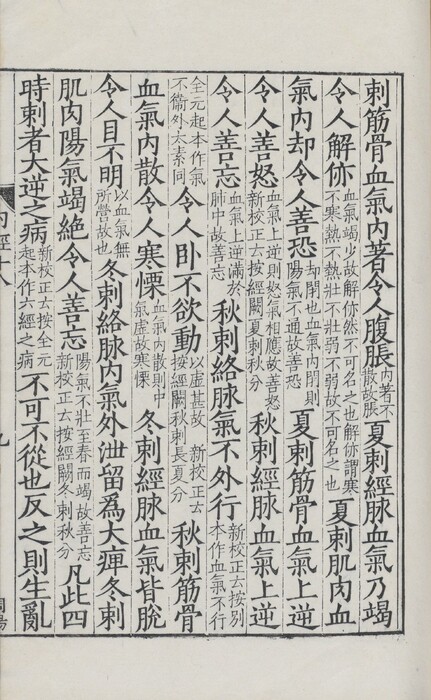 刺筋骨血氣內著令人腹脹內著不散故脹夏刺經脉血氣乃竭
令人解㑊血氣竭少故解㑊然不可名之也解㑊謂寒不寒熱不熱壯不壯弱不弱故不可名之也夏刺肌肉血
氣內却令人善恐却閉也血氣內閉則陽氣不通故善恐夏刺筋骨血氣上逆
令人善怒血氣上逆則怒氣相應故善怒新校正云按經闕夏刺秋分秋刺經脉血氣上逆
令人善忘血氣上逆滿於肺中故善忘秋刺絡脉氣不外行新校正云按別本作血氣不行
全元起本作氣不衞外太素同令人卧不欲動以虛甚故新校正云按經闕秋刺長夏分秋刺筋骨
血氣內散令人寒慄血氣內散則中氣虛故寒慄冬刺經脉血氣皆脫
令人目不明以血氣無所營故也冬刺絡脉內氣外泄留爲大痺冬刺
肌肉陽氣竭絕令人善忘陽氣不壯至春而竭故善忘新校正云按經闕冬刺秋分凡此四
時刺者大逆之病新校正云按全元起本作六經之病不可不從也反之則生亂